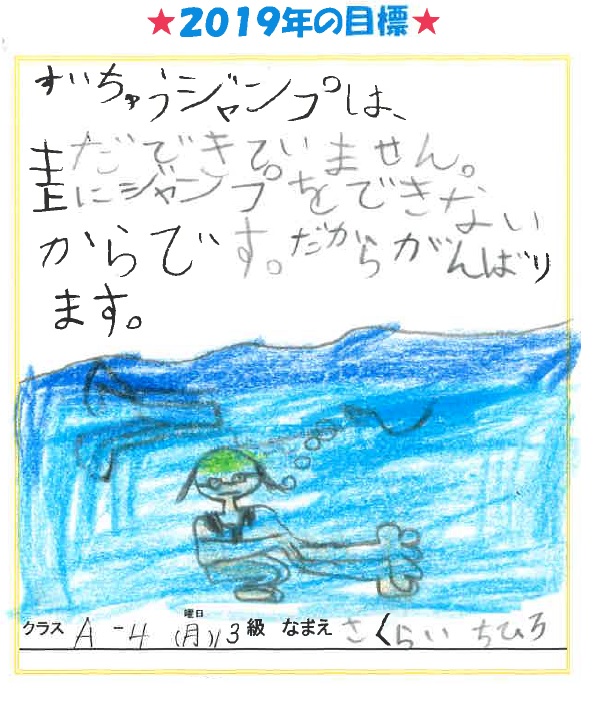 ★2019年の目標★
すいちゅうジャンプは、
まだできていません。
上にジャンプをできない
からです。だからがんばり
ます。
クラス A-4 曜日(月)13級 なまえ さくらい ちひろ